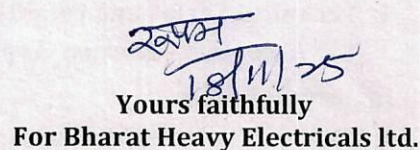 18/11/25
Yours faithfully
For Bharat Heavy Electricals ltd.